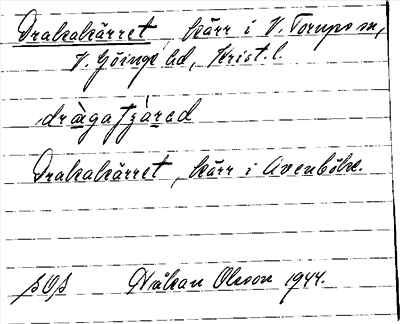 Drakakärret, kärr i V. Torups sn,
V. Göinge hd, Krist. l.
dràgatjáred
Drakakärret, kärr i Avenböke.
Håkan Olsson 1944.